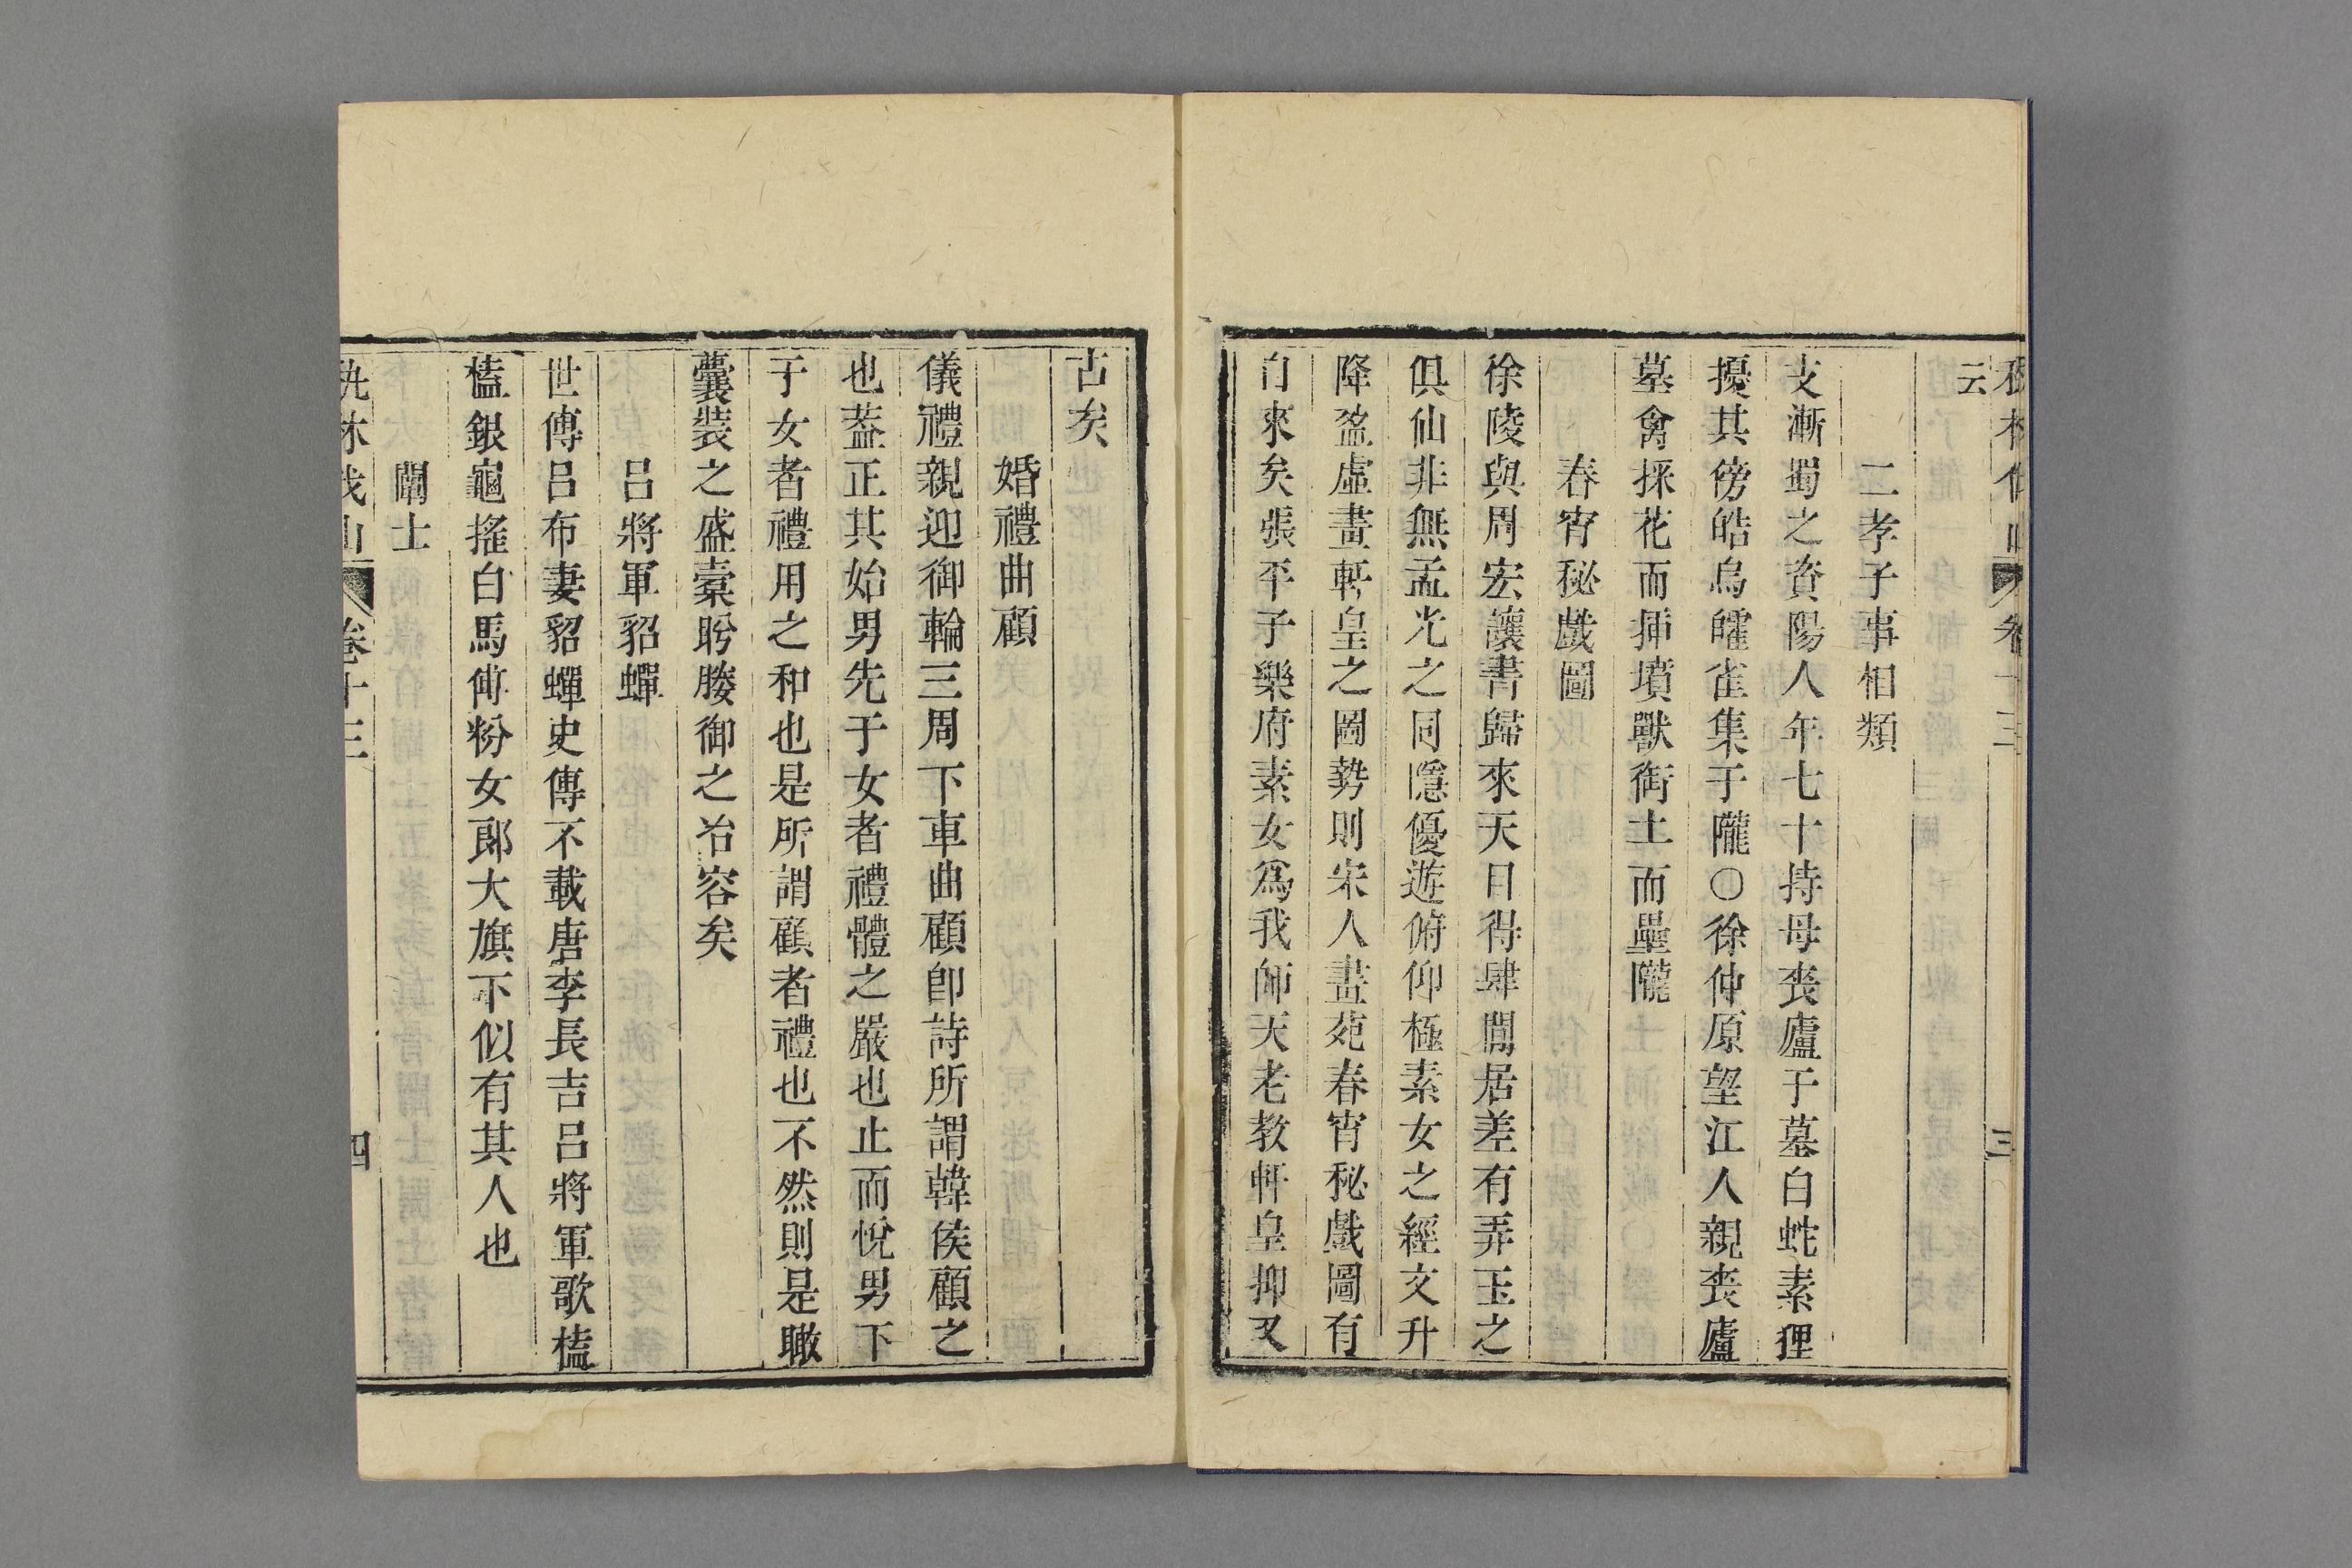 云
二孝子事相類
支漸蜀之資陽人年七十持母喪廬于墓白蛇素狸
擾其傍皓烏皬雀集于隴○徐仲原望江人親喪廬
墓禽採花而揷墳獸銜土而壘隴
春宵秘戲圖
徐陵與周宏讓書歸來天目得肆閒居差有弄玉之
俱仙非無孟光之同隱優遊俯仰極素女之經文升
降盈虛盡軒皇之圖勢則宋人畫苑春宵秘戲圖有
自來矣張平子樂府素女爲我師天老教軒皇抑又
古矣
婚禮曲顧
儀禮親迎御輪三周下車曲顧卽詩所謂韓侯顧之
也葢正其始男先于女者禮體之嚴也止而悅男下
于女者禮用之和也是所謂顧者禮也不然則是瞰
囊裝之盛橐盻媵御之冶容矣
呂將軍貂蟬
世傳呂布妻貂蟬史傳不載唐李長吉呂將軍歌榼
榼銀龜搖白馬傅粉女郎大旗下似有其人也
闘士
秇林伐山 卷十三 四